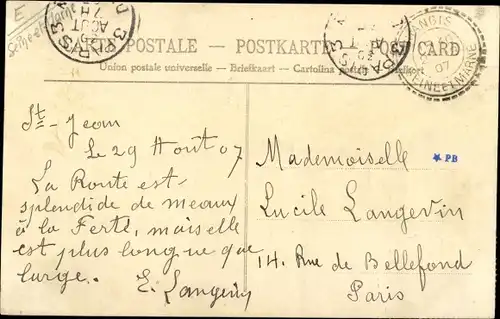 E
Seine et Marne
CARTE POSTALE - POSTKARTE - POST CARD
Union postale universelle - Briefkaart - Cartolina
PARIS 3
AOUT
SEINE ET MARNE
07
St-Jean
Le 29 Aout 07
La Route est
splendide de meaux
à la Ferté, mais elle
est plus longue que
large.
E. Langevin
Mademoiselle
PB
Lucile Langevin
14. Rue de Bellefond
Paris